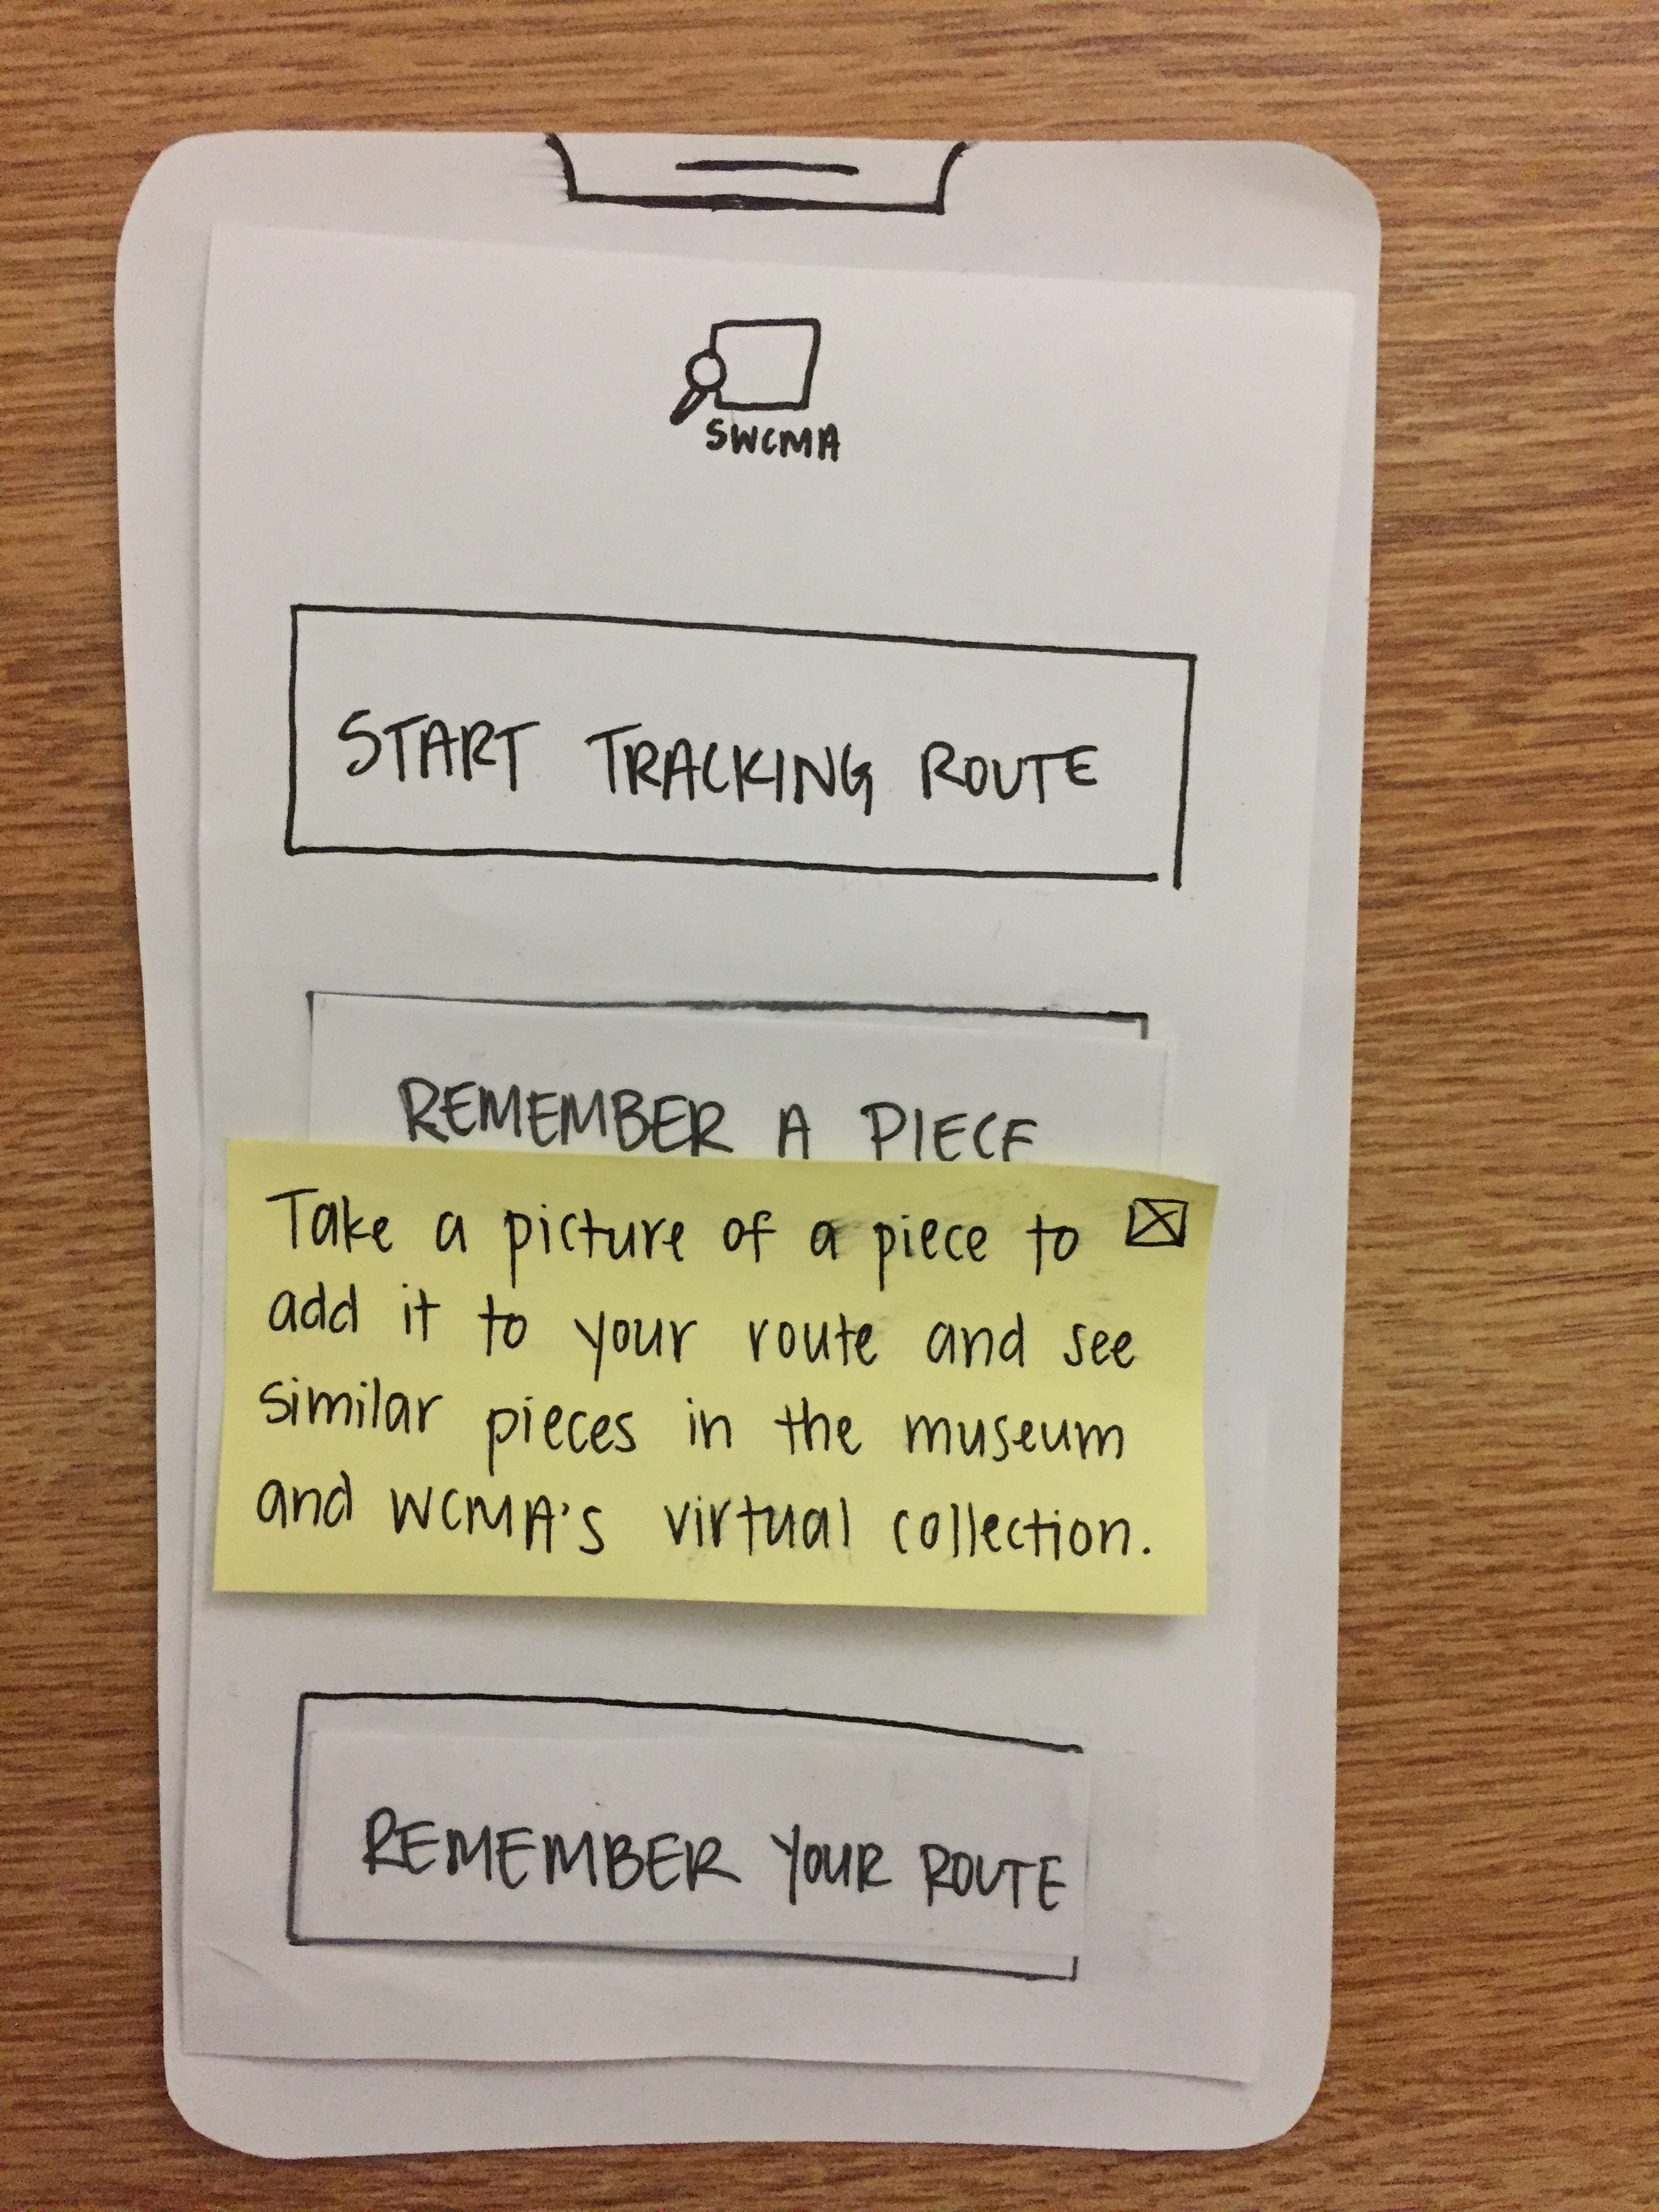 SWCMA
START TRACKING ROUTE
REMEMBER A PIECE
Take a picture of a piece to
add it to your route and see
similar pieces in the museum
and WCMA's virtual collection.
REMEMBER YOUR ROUTE